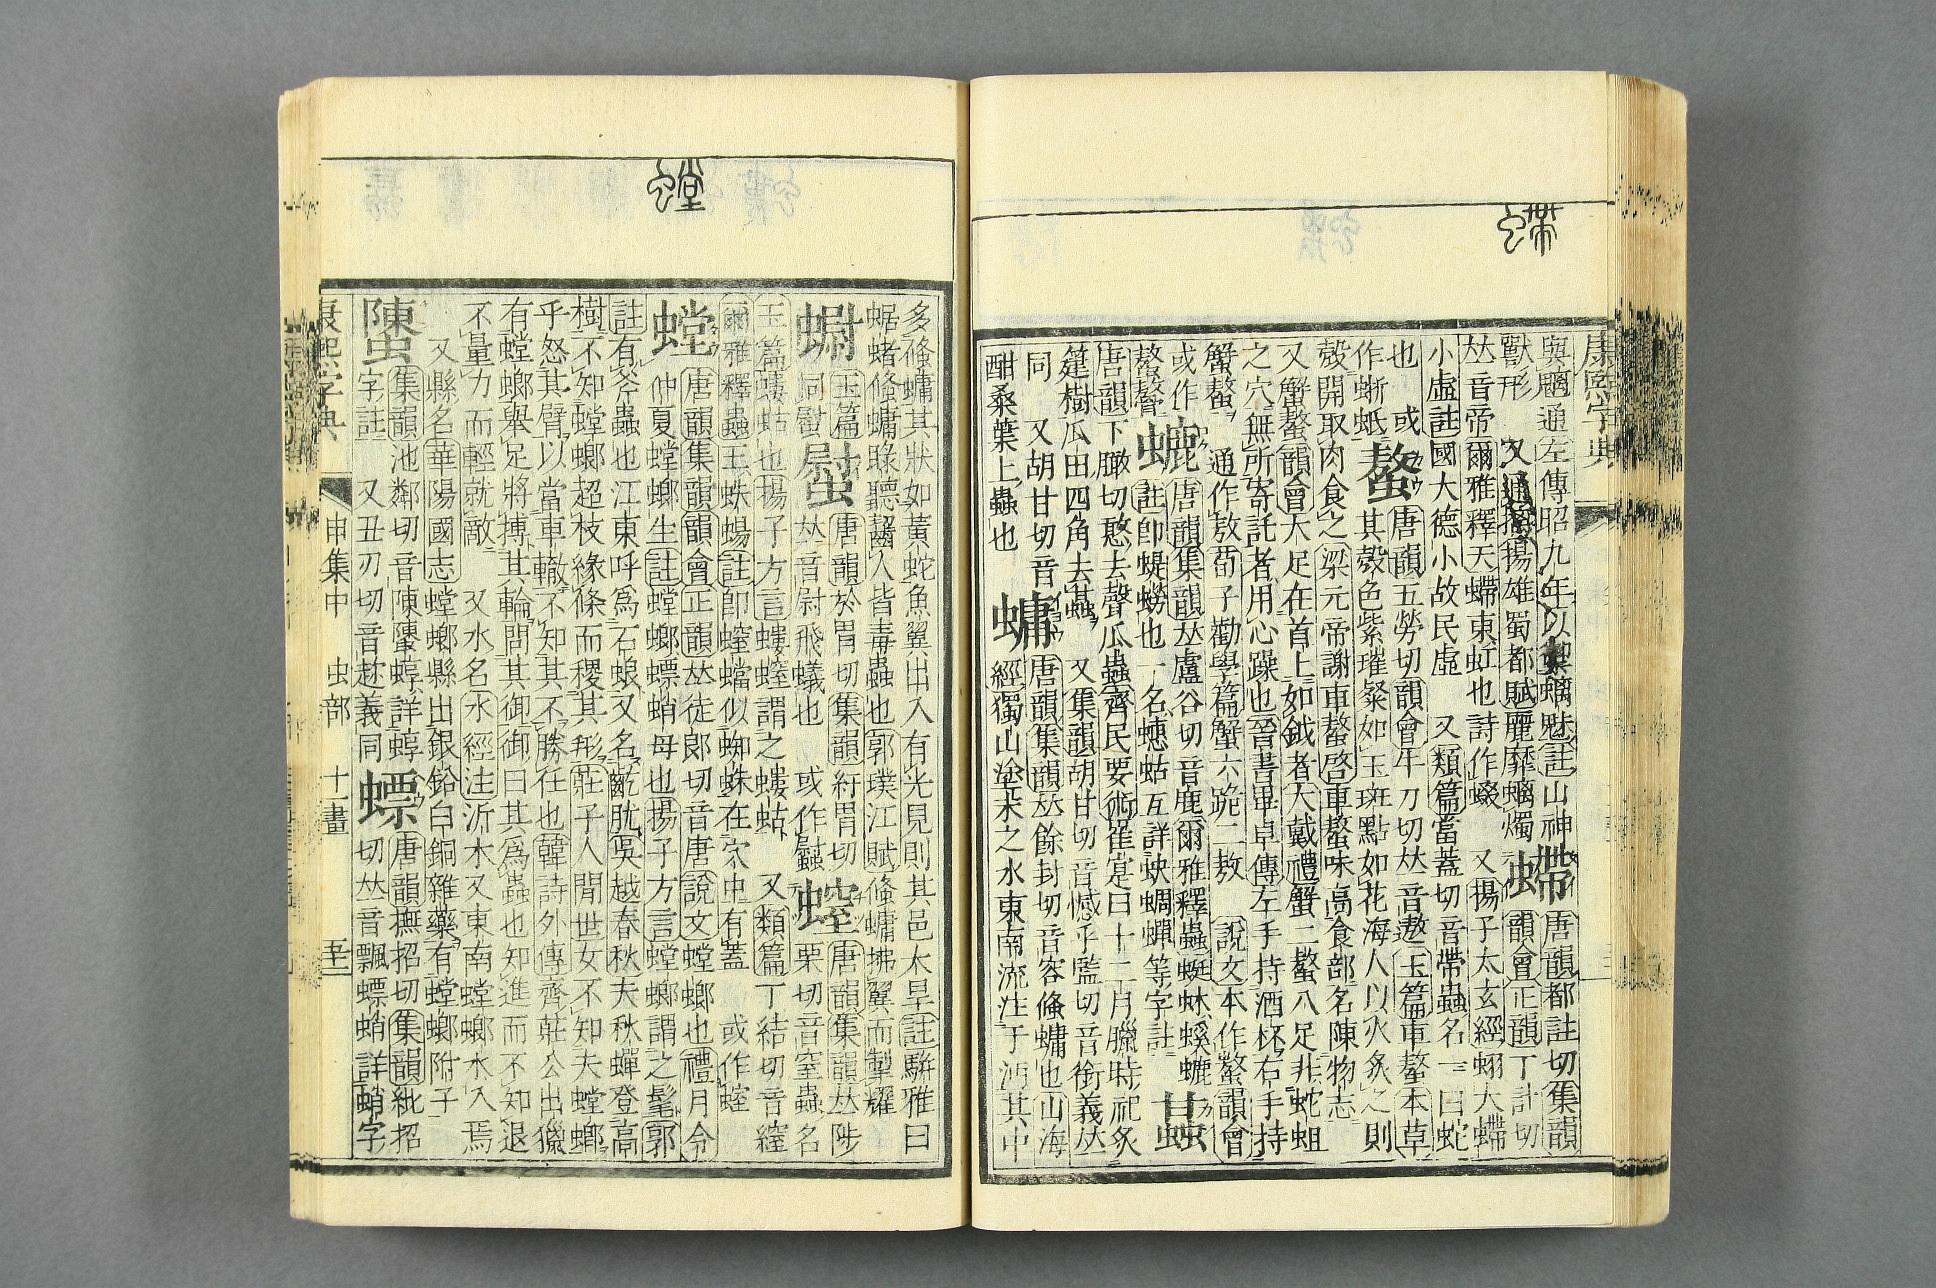 與魑通左傳昭九年以禦螭魅註山神螮唐韻都計切集韻
獸形 又通摛揚雄蜀都賦麗靡螭燭韻會正韻丁計切
𠀤音帝爾雅釋天螮蝀虹也詩作蝃 又揚子太玄經蛡大螮
小虛註國大德小故民虛 又類篇當蓋切音帶蟲名一曰蛇
也 或螯唐韻五勞切韻會牛刀切𠀤音遨玉篇車螯本草
作蜥蚔 其殼色紫璀粲如玉斑點如花海人以火炙之則
殼開取肉食之梁元帝謝車螯啓車螯味高食部名陳物志
又蟹螯韻會大足在首上如鉞者大戴禮蟹二螯八足非蛇蛆
之穴無所寄託者用心躁也晉書畢卓傳左手持酒杯右手持
蟹螯 通作敖荀子勸學篇蟹六跪二敖 說文本作螯韻會
或作螰唐韻集韻𠀤盧谷切音鹿爾雅釋蟲蜓蚞螇螰
註卽蝭蟧也一名蟪蛄互詳蚗蜩蟬等字註
唐韻下瞰切憨去聲瓜蟲齊民要術崔寔曰十二月臘時祀炙
箑樹瓜田四角去 又集韻胡甘切音憨乎監切音銜義𠀤
同 又胡甘切音 唐韻集韻𠀤餘封切音容鯈⿰虫庸也山海
酣桑葉上蟲也 經獨山塗末之水東南流注于沔其中
康熙字典
多鯈⿰虫庸其狀如黃蛇魚翼出入有光見則其邑大旱註駢雅曰
蜛蝫鯈⿰虫庸騄聽齧人皆毒蟲也郭璞江賦鯈⿰虫庸拂翼而掣耀
玉篇 唐韻於胃切集韻紆胃切 螲唐韻集韻𠀤陟
同尉 𠀤音尉飛蟻也 或作 栗切音窒蟲名
玉篇螻蛄也揚子方言螻螲謂之螻蛄 又類篇丁結切音窒
爾雅釋蟲王蛈蝪註卽螲蟷似蜘蛛在穴中有蓋 或作
螳唐韻集韻韻會正韻𠀤徒郎切音唐說文螳螂也禮月令
仲夏螳螂生註螳螂螵蛸母也揚子方言螳螂謂之髦郭
註有斧蟲也江東呼爲石蜋又名齕肬吳越春秋夫秋蟬登高
樹不知螳螂超枝緣條而稷其形莊子人閒世女不知夫螳螂
乎怒其臂以當車轍不知其不勝任也韓詩外傳齊莊公出獵
有螳螂舉足將搏其輪問其御御曰其爲蟲也知進而不知退
不量力而輕就敵 又水名水經注沂水又東南螳螂水入焉
又縣名華陽國志螳螂縣出銀鉛白銅雜藥有螳螂附子
螴集韻池鄰切音陳螴蜳詳蜳螵唐韻撫招切集韻紕招
字註 又丑刃切音趁義同 切𠀤音飄螵蛸詳蛸字
康熙字典 申集中 虫部 十一畫